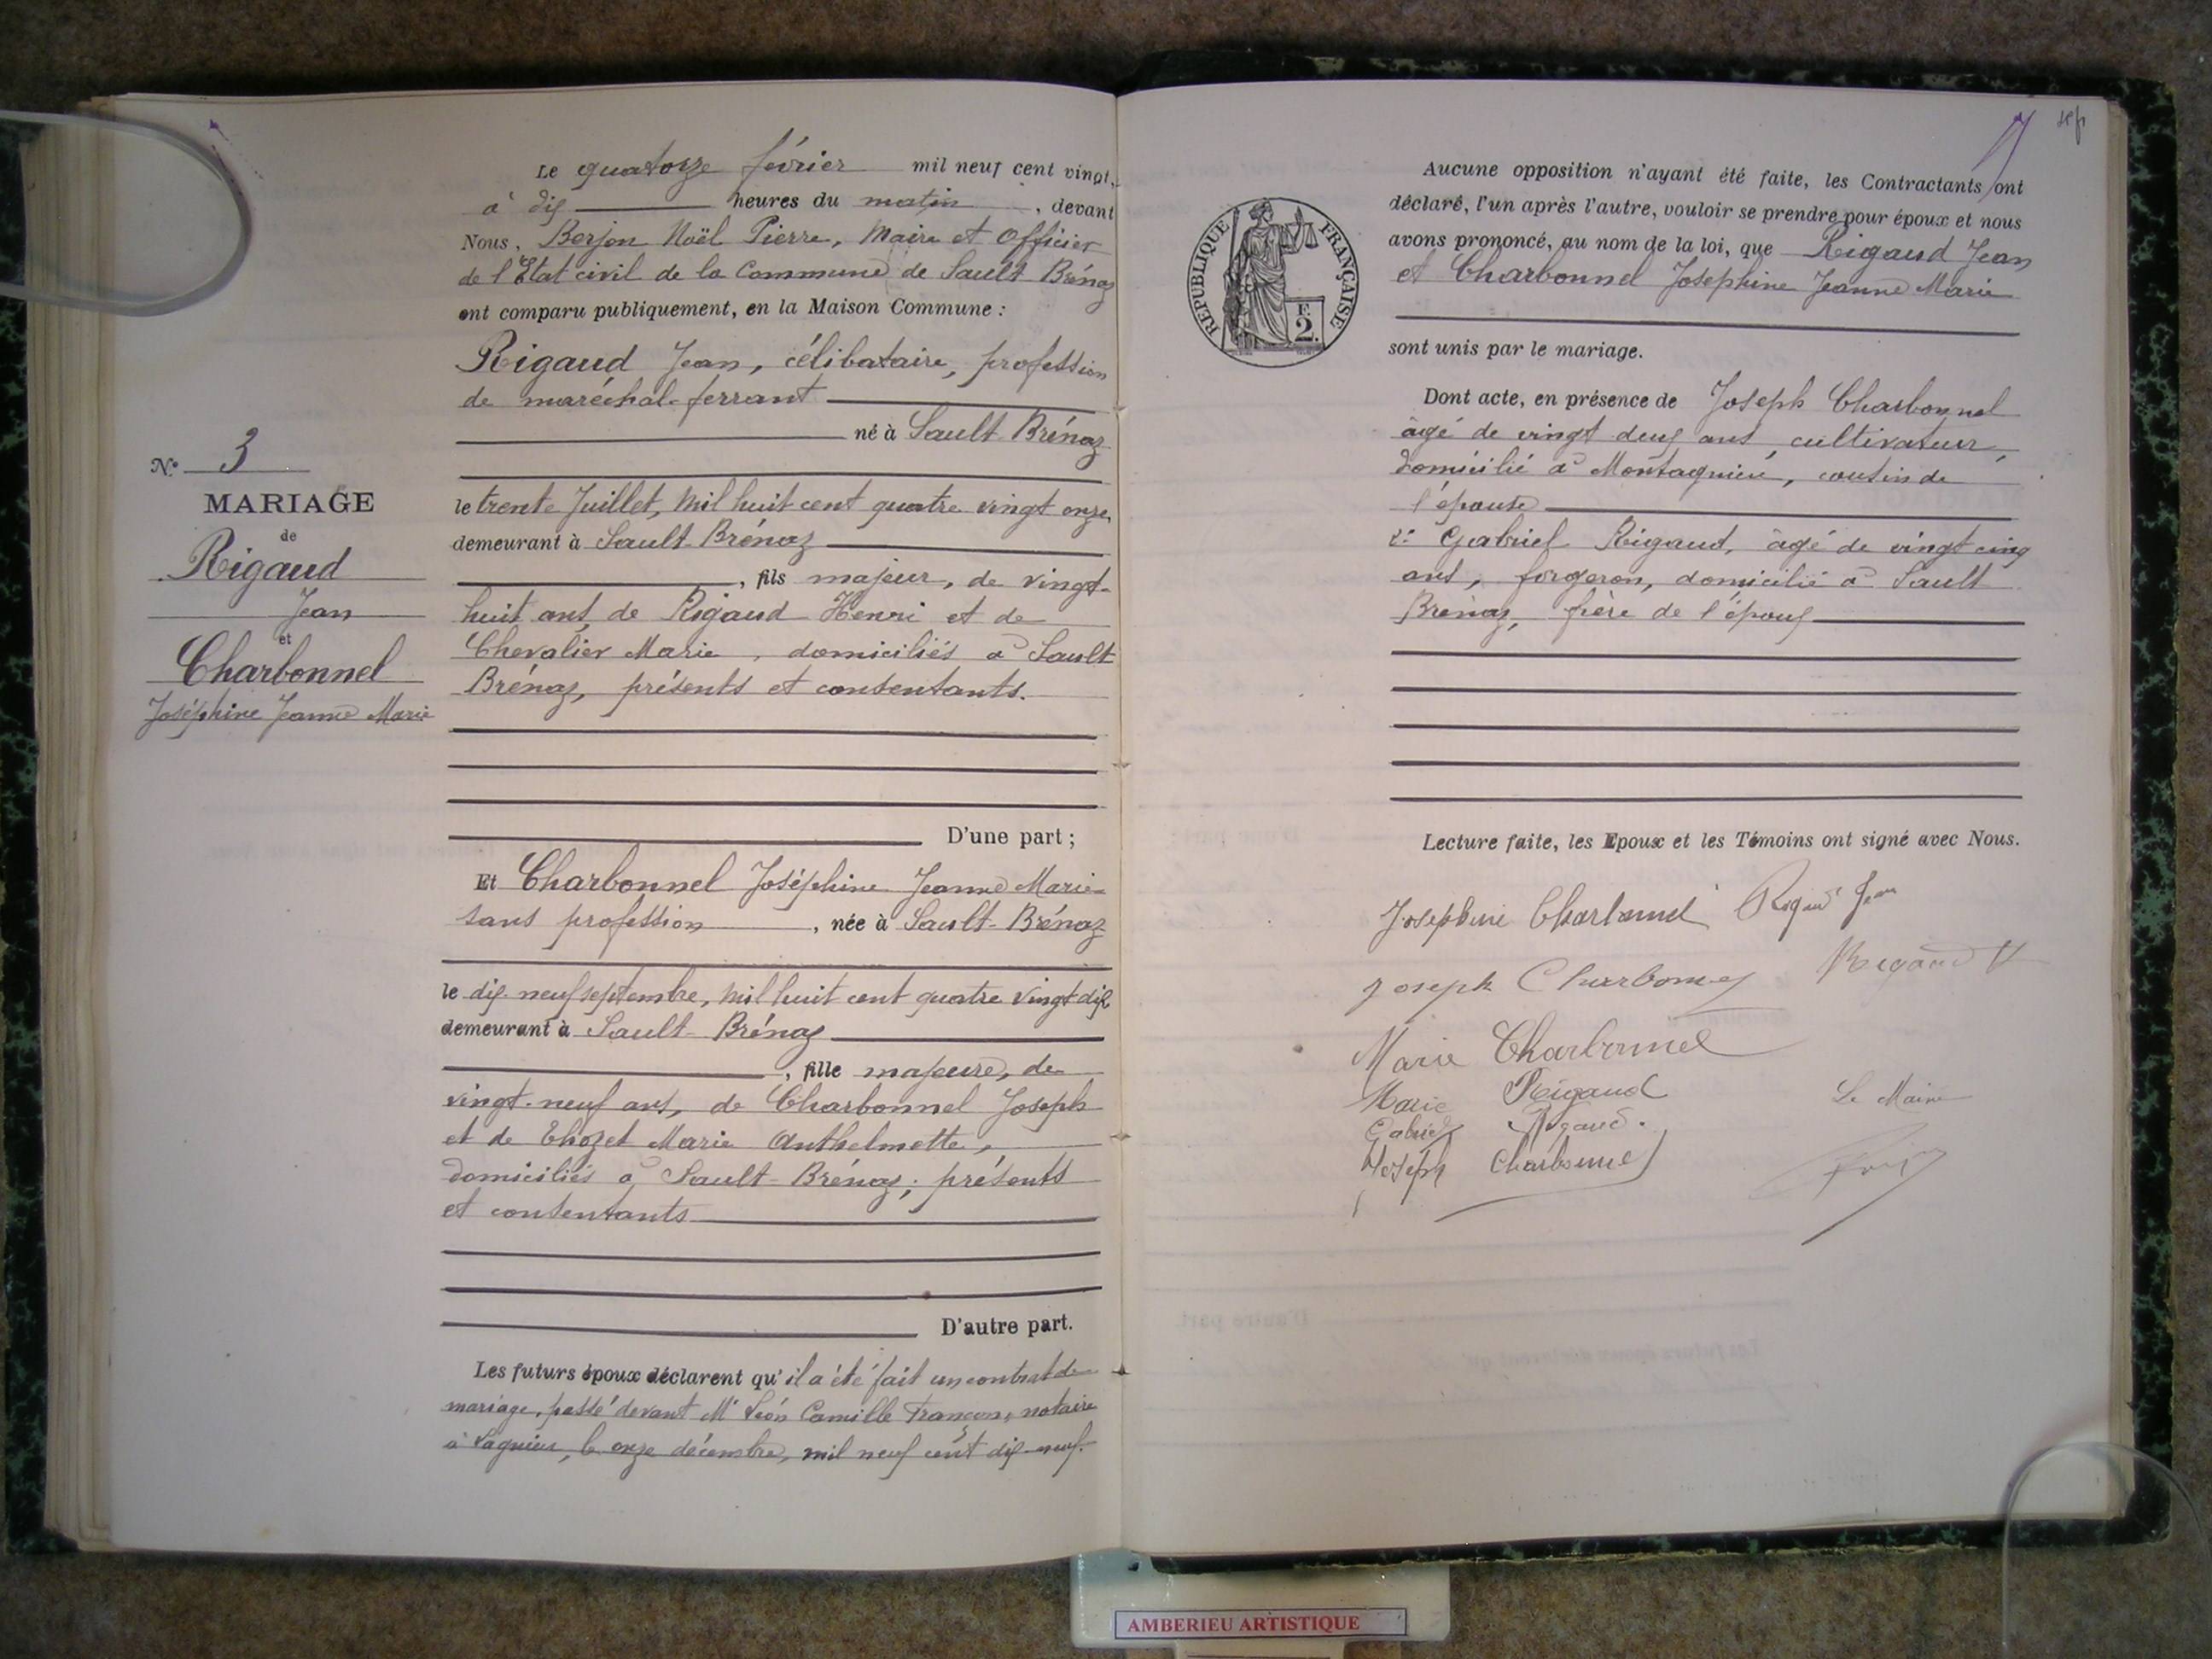 Le quatorze février mil neuf cent vingt,
à dix heures du matin, devant
Nous, Berjon Noël Pierre, Maire et Officier
de l'Etat civil de la Commune de Sault Brénaz
ont comparu publiquement, en la Maison Commune :
Rigaud Jean, célibataire, profession
de maréchal-ferrant
né à Sault-Brénaz
le trente Juillet, mil huit cent quatre vingt onze,
demeurant à Sault-Brénaz
, fils majeur, de vingt-
huit ans, de Rigaud Henri et de
Chevalier Marie, domiciliés à Sault
Brénaz, présents et consentants.
D'une part ;
Et Charbonnel Joséphine Jeanne Marie
sans profession, née à Sault-Brénaz
le dix-neuf septembre, mil huit cent quatre vingt dix
demeurant à Sault-Brénaz
, fille majeure, de
vingt-neuf ans, de Charbonnel Joseph
et de Thozet Marie Anthelmette,
domiciliés à Sault-Brénaz ; présents
et consentants
D'autre part.
Les futurs époux déclarent qu'il a été fait un contrat de
mariage, passé devant Me Léon Camille Françon, notaire
à Lagnieu, le onze décembre, mil neuf cent dix-neuf.
No 3
MARIAGE
de
Rigaud
Jean
et
Charbonnel
Joséphine Jeanne Marie
RÉPUBLIQUE FRANÇAISE
F.
2.
Aucune opposition n'ayant été faite, les Contractants ont
déclaré, l'un après l'autre, vouloir se prendre pour époux et nous
avons prononcé, au nom de la loi, que Rigaud Jean
et Charbonnel Josephine Jeanne Marie
sont unis par le mariage.
Dont acte, en présence de Joseph Charbonnel
âgé de vingt-deux ans, cultivateur,
domicilié à Montagnieu, cousin de
l'épouse
2° Gabriel Rigaud, âgé de vingt cinq
ans, forgeron, domicilié à Sault
Brénaz, frère de l'époux
Lecture faite, les Epoux et les Témoins ont signé avec Nous.
Joséphine Charbonnel Rigaud Jean
Joseph Charbonnel Rigaud H
Marie Charbonnel
Marie Rigaud
Le Maire
Gabriel Rigaud.
Joseph Charbonnel
AMBERIEU ARTISTIQUE